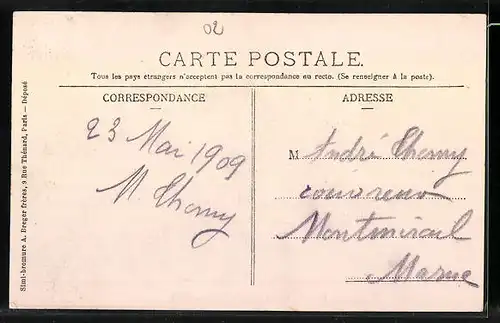 02
CARTE POSTALE.
Tous les pays étrangers n'acceptent pas la correspondance au recto. (Se renseigner à la poste).
CORRESPONDANCE
ADRESSE
23 Mai 1909
M Thomy
M André Thomy
couvreur
Montmirail
Marne
Simi-bromure A. Breger frères, 9 Rue Thénard, Paris — Déposé